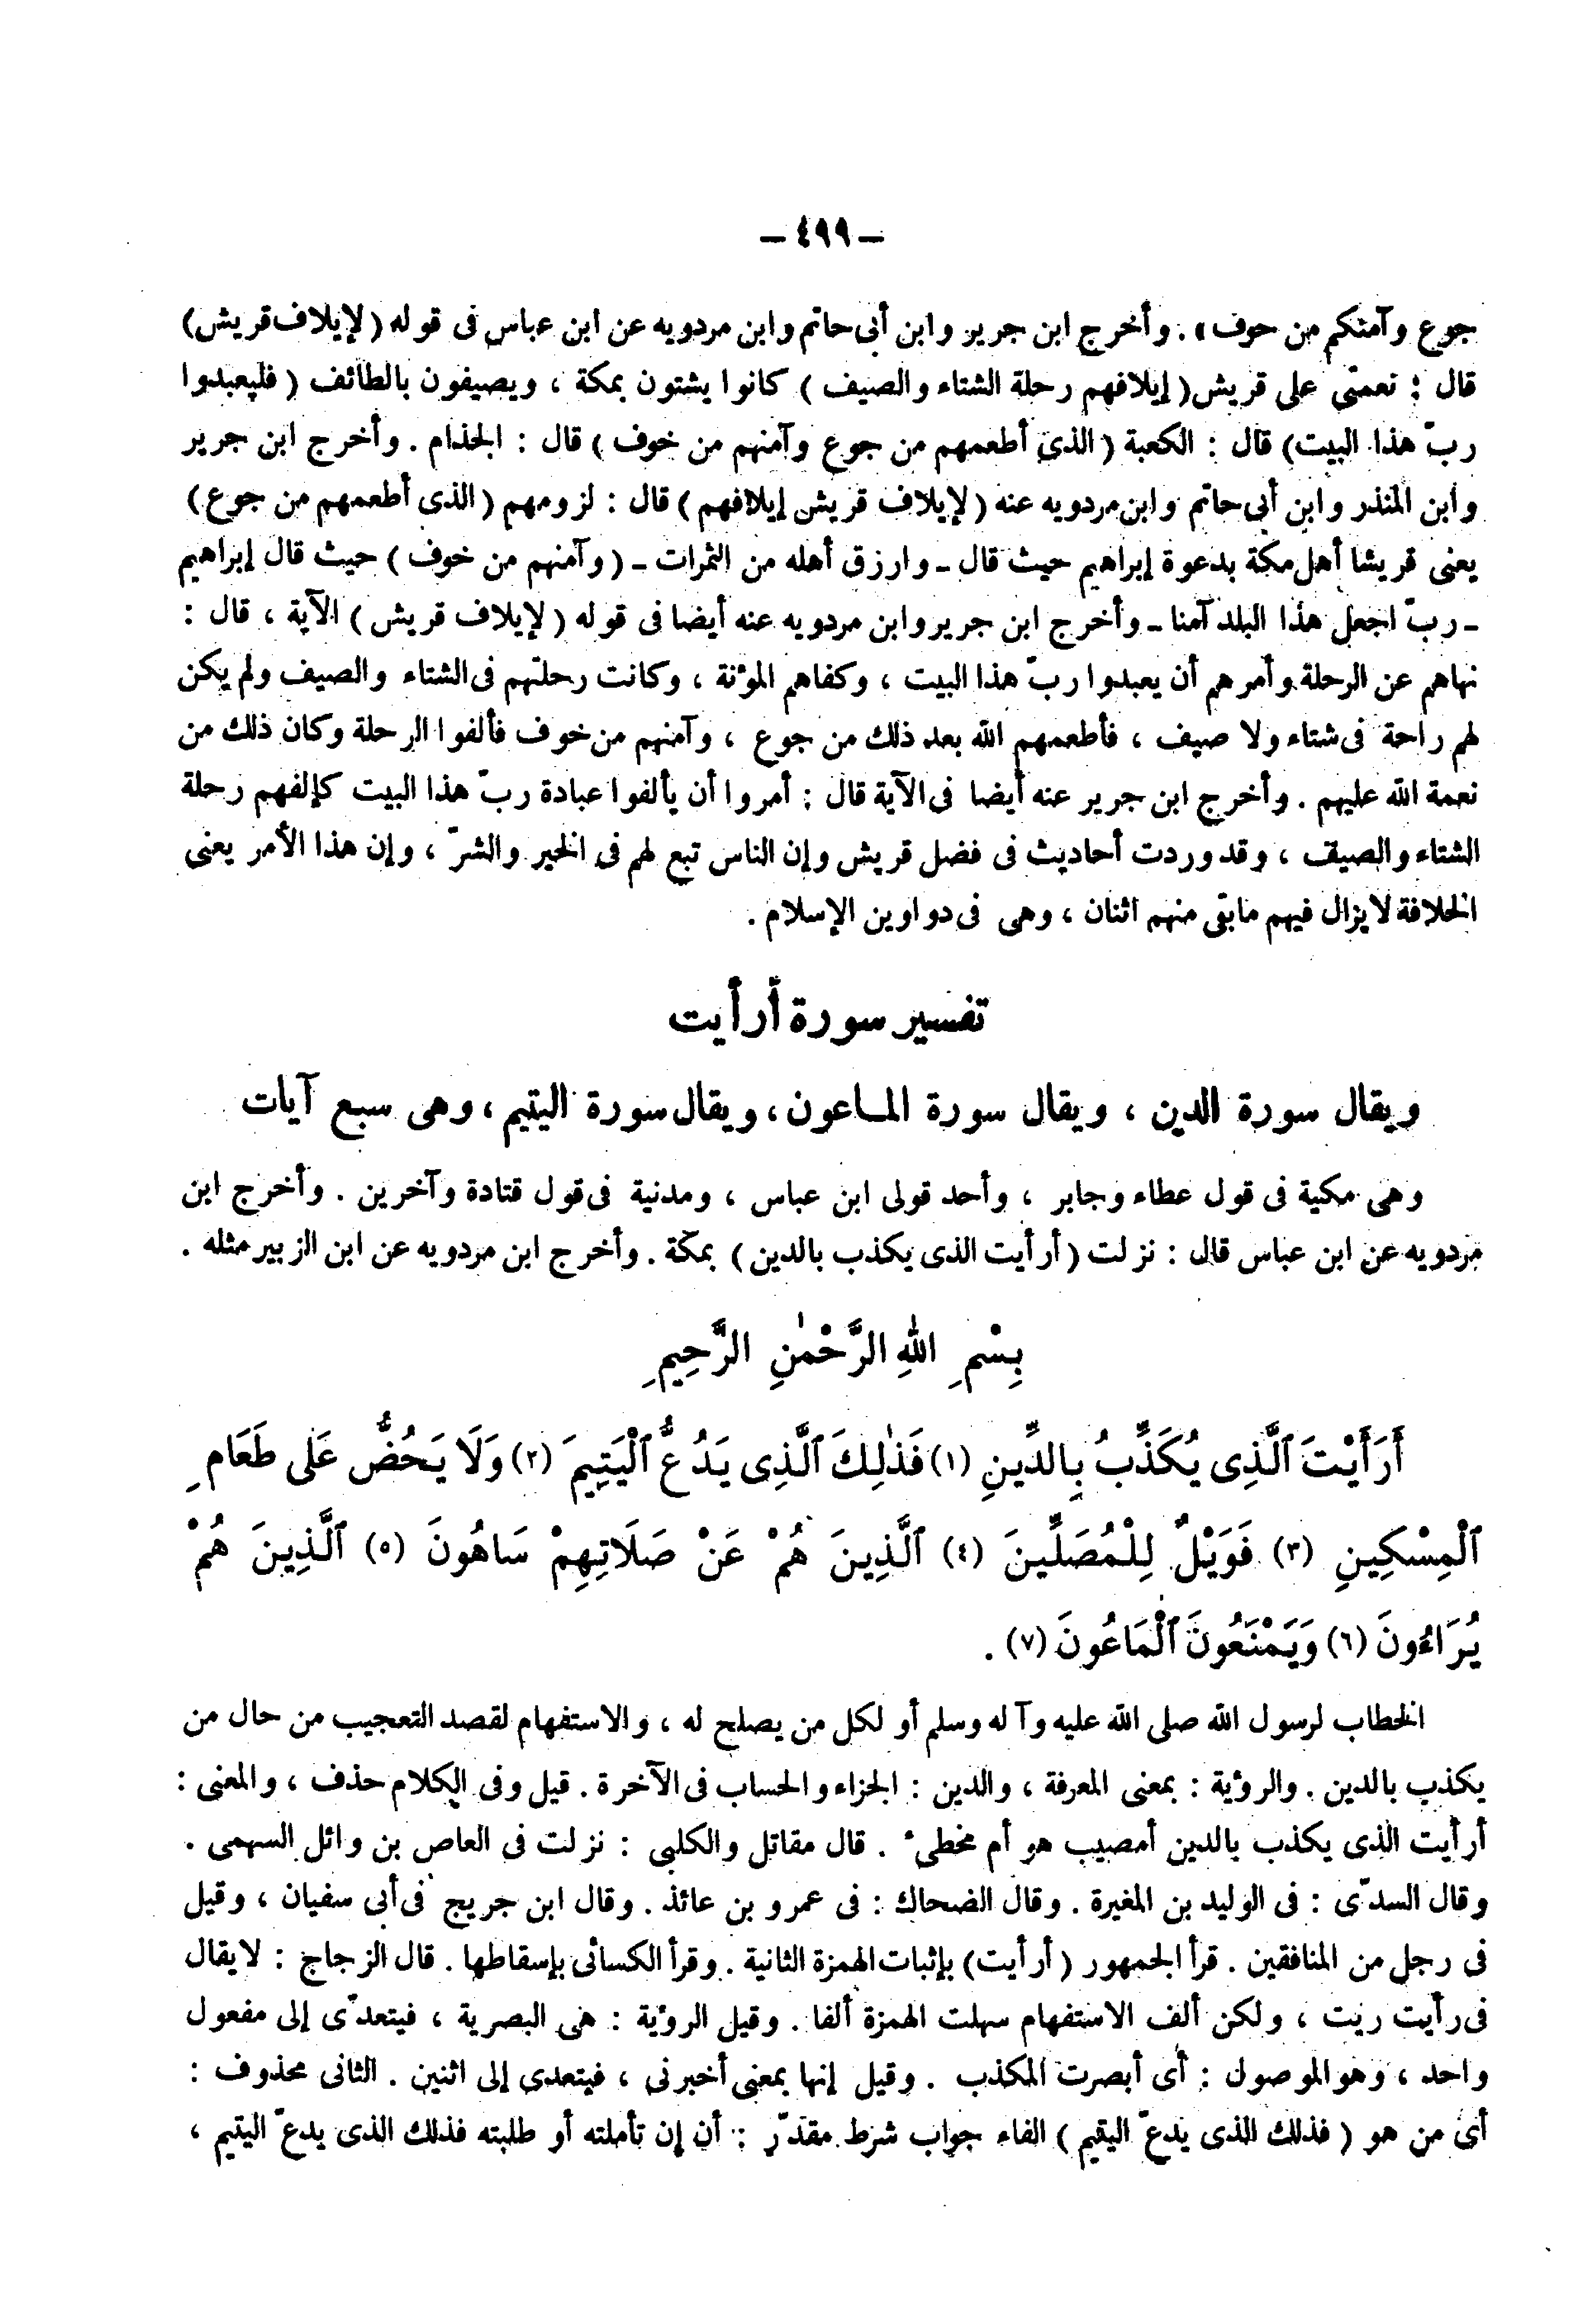 — ٤٩٩ —
جوع وآمنكم من خوف » . وأخرج ابن جرير وابن أبى حاتم وابن مردويه عن ابن عباس فى قوله ( لإيلاف قريش )
قال : نعمتى على قريش ( إيلافهم رحلة الشتاء والصيف ) كانوا يشتون بمكة ، ويصيفون بالطائف ( فليعبدوا
ربّ هذا البيت ) قال : الكعبة ( الذى أطعمهم من جوع وآمنهم من خوف ) قال : الجذام . وأخرج ابن جرير
وابن المنذر وابن أبى حاتم وابن مردويه عنه ( لإيلاف قريش إيلافهم ) قال : لزومهم ( الذى أطعمهم من جوع )
يعنى قريشا أهل مكة بدعوة إبراهيم حيث قال ـ وارزق أهله من الثمرات ـ ( وآمنهم من خوف ) حيث قال إبراهيم
ـ ربّ اجعل هذا البلد آمنا ـ وأخرج ابن جرير وابن مردويه عنه أيضا فى قوله ( لإيلاف قريش ) الآية ، قال :
نهاهم عن الرحلة وأمرهم أن يعبدوا ربّ هذا البيت ، وكفاهم المؤنة ، وكانت رحلتهم فى الشتاء والصيف ولم يكن
لهم راحة فى شتاء ولا صيف ، فأطعمهم الله بعد ذلك من جوع ، وآمنهم من خوف فألفوا الرحلة وكان ذلك من
نعمة الله عليهم . وأخرج ابن جرير عنه أيضا فى الآية قال : أمروا أن يألفوا عبادة ربّ هذا البيت كإلفهم رحلة
الشتاء والصيف ، وقد وردت أحاديث فى فضل قريش وإن الناس تبع لهم فى الخير والشرّ ، وإن هذا الأمر يعنى
الخلافة لا يزال فيهم ما بقى منهم اثنان ، وهى فى دواوين الإسلام .
تفسير سورة أرأيت
ويقال سورة الدين ، ويقال سورة المـاعون ، ويقال سورة اليتيم ، وهى سبع آيات
وهى مكية فى قول عطاء وجابر ، وأحد قولى ابن عباس ، ومدنية فى قول قتادة وآخرين . وأخرج ابن
مردويه عن ابن عباس قال : نزلت ( أرأيت الذى يكذب بالدين ) بمكة . وأخرج ابن مردويه عن ابن الزبير مثله .
بِسْمِ اللهِ الرَّحْمٰنِ الرَّحِيمِ
أَرَأَيْتَ ٱلَّذِى يُكَذِّبُ بِالدِّينِ (١) فَذٰلِكَ ٱلَّذِى يَدُعُّ ٱلْيَتِيمَ (٢) وَلَا يَحُضُّ عَلَى طَعَامِ
ٱلْمِسْكِينِ (٣) فَوَيْلٌ لِلْمُصَلِّينَ (٤) ٱلَّذِينَ هُمْ عَنْ صَلَاتِهِمْ سَاهُونَ (٥) ٱلَّذِينَ هُمْ
يُرَاءُونَ (٦) وَيَمْنَعُونَ ٱلْمَاعُونَ (٧) .
الخطاب لرسول الله صلى الله عليه وآله وسلم أو لكل من يصلح له ، والاستفهام لقصد التعجيب من حال من
يكذب بالدين . والرؤية : بمعنى المعرفة ، والدين : الجزاء والحساب فى الآخرة . قيل وفى الكلام حذف ، والمعنى :
أرأيت الذى يكذب بالدين أمصيب هو أم مخطىء . قال مقاتل والكلبى : نزلت فى العاص بن وائل السهمى .
وقال السدّى : فى الوليد بن المغيرة . وقال الضحاك : فى عمرو بن عائذ . وقال ابن جريج فى أبى سفيان ، وقيل
فى رجل من المنافقين . قرأ الجمهور ( أرأيت ) بإثبات الهمزة الثانية . وقرأ الكسائى بإسقاطها . قال الزجاج : لا يقال
فى رأيت ريت ، ولكن ألف الاستفهام سهلت الهمزة ألفا . وقيل الرؤية : هى البصرية ، فيتعدّى إلى مفعول
واحد ، وهو الموصول : أى أبصرت المكذب . وقيل إنها بمعنى أخبرنى ، فيتعدى إلى اثنين . الثانى محذوف :
أى من هو ( فذلك الذى يدعّ اليتيم ) الفاء جواب شرط مقدّر : أن إن تأملته أو طلبته فذلك الذى يدعّ اليتيم ،